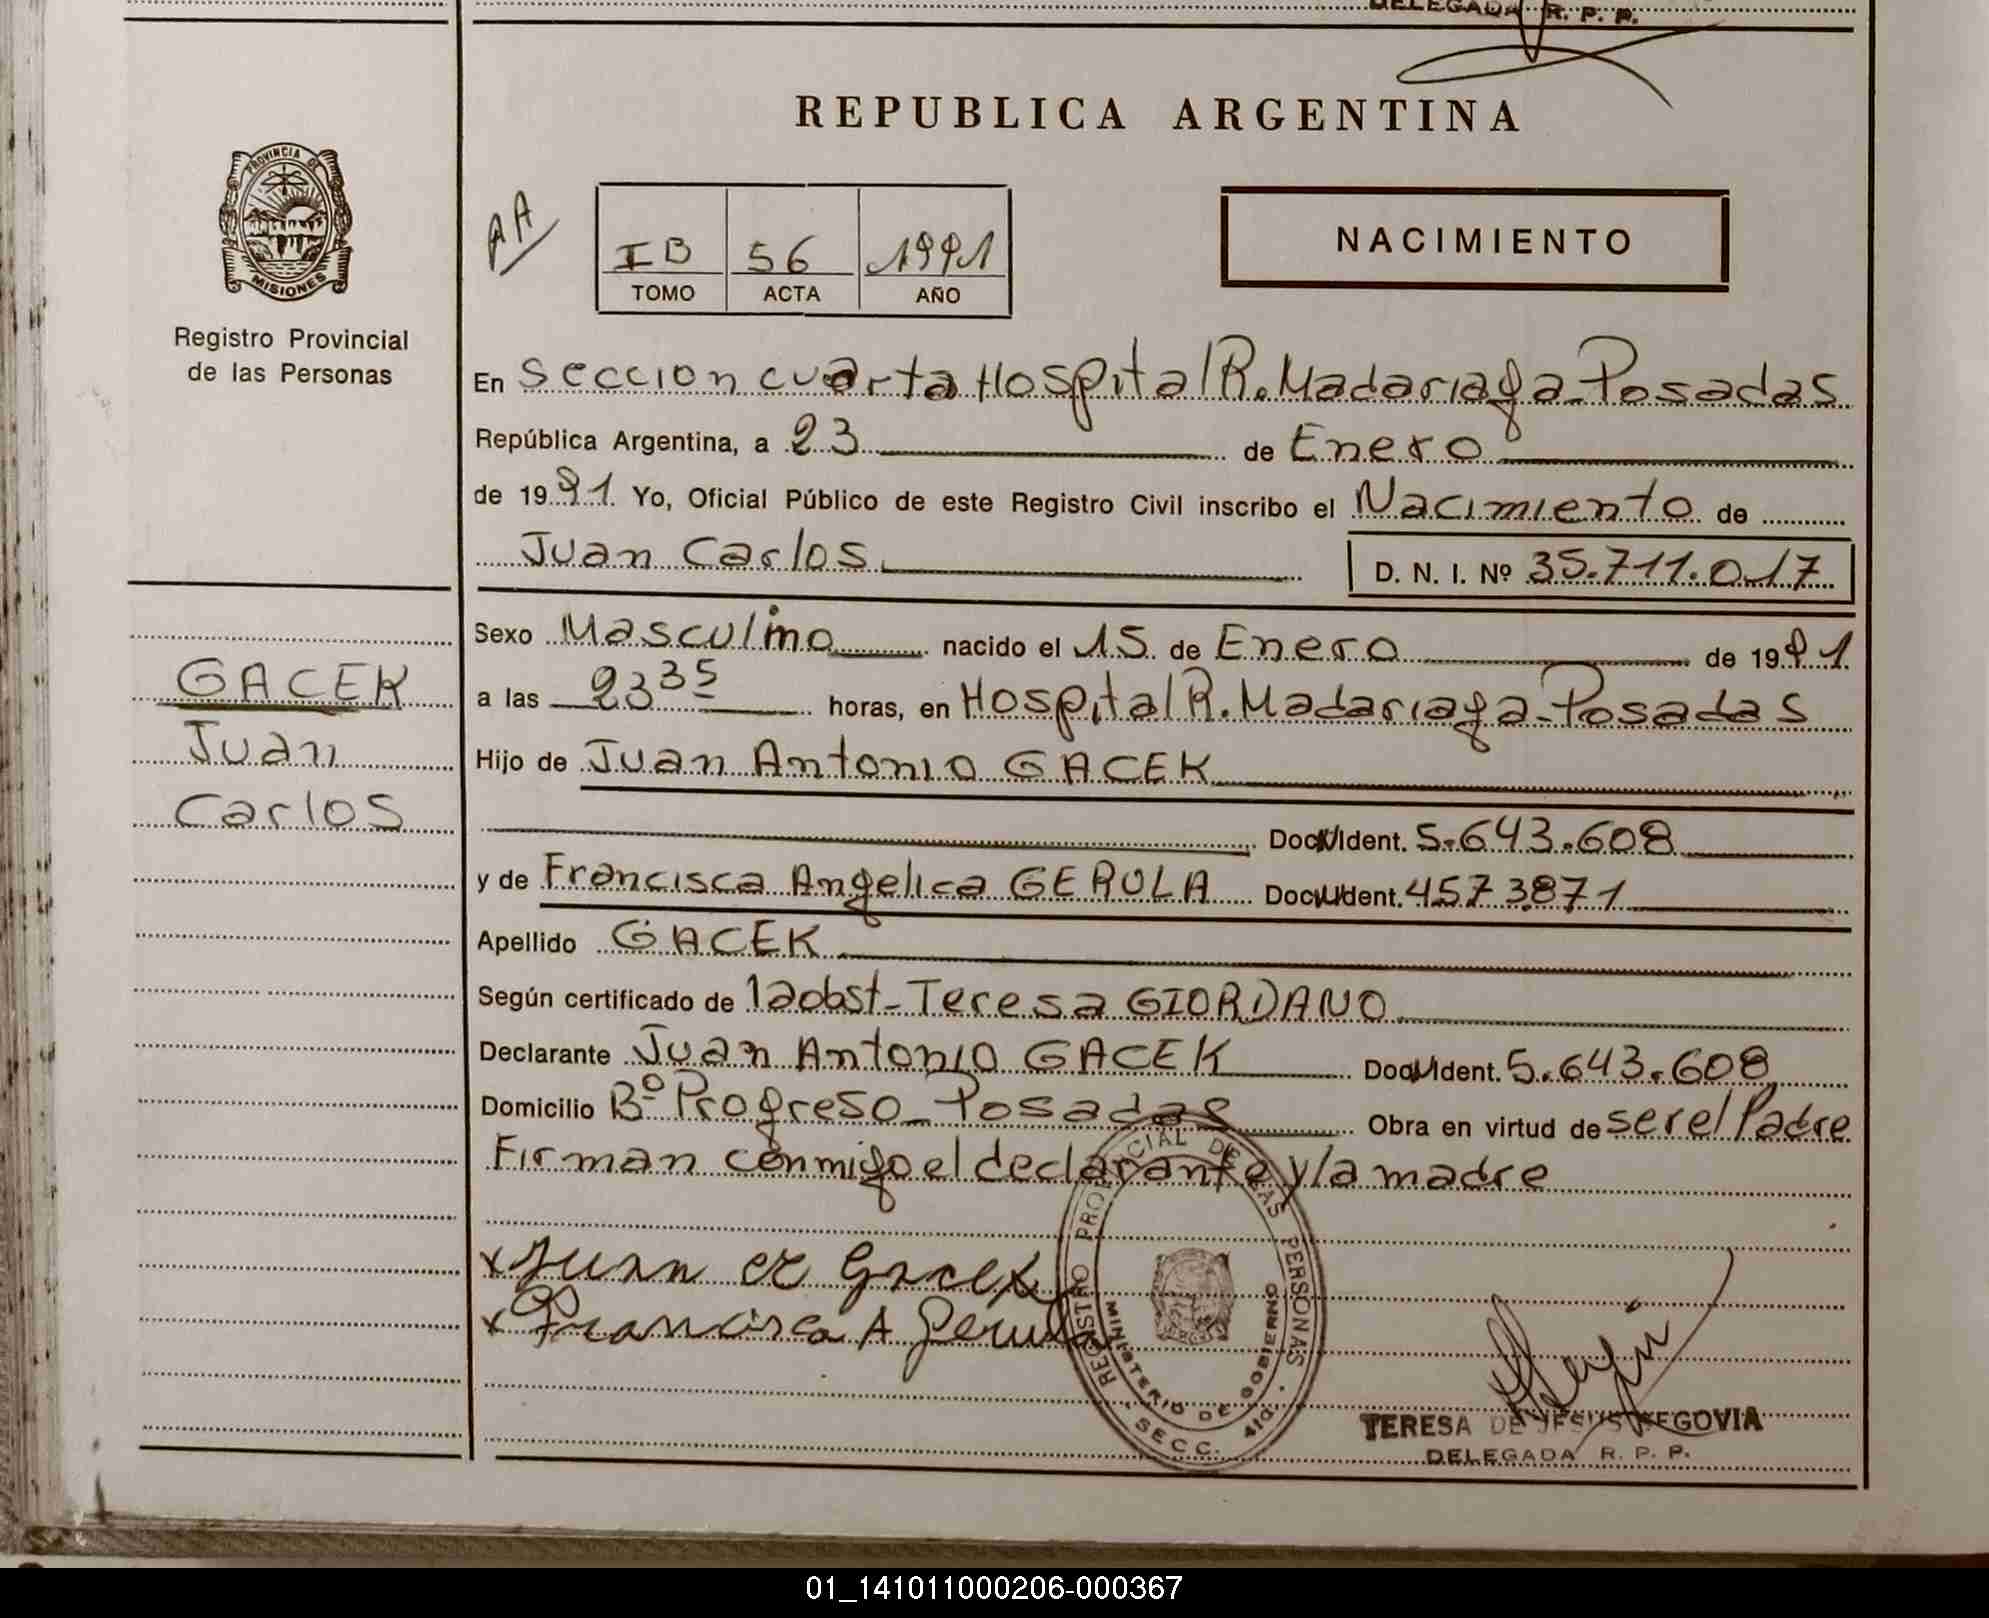 DELEGADA R. P. P.
REPUBLICA ARGENTINA
PROVINCIA DE
MISIONES
Registro Provincial
de las Personas
AA
IB 56 1991
TOMO ACTA AÑO
NACIMIENTO
En Seccion cuarta Hospital R. Madariaga - Posadas
República Argentina, a 23 de Enero
de 1991 Yo, Oficial Público de este Registro Civil inscribo el Nacimiento de
Juan Carlos D. N. I. Nº 35.711.017
GACEK
Juan
Carlos
Sexo Masculino nacido el 15 de Enero de 1991
a las 23 35 horas, en Hospital R. Madariaga - Posadas
Hijo de Juan Antonio GACEK
Doc. Ident. 5.643.608
y de Francisca Angelica GEROLA Doc. Ident. 4573871
Apellido GACEK
Según certificado de la obst - Teresa GIORDANO
Declarante Juan Antonio GACEK Doc. Ident. 5.643.608
Domicilio Bº Progreso - Posadas Obra en virtud de ser el Padre
Firman conmigo el declarante y la madre
x Juan Gacek
x Francisca A
REGISTRO PROVINCIAL DE LAS PERSONAS
MINISTERIO DE GOBIERNO
SECC. 4ta.
TERESA DE JESUS SEGOVIA
DELEGADA R. P. P.
01_141011000206-000367